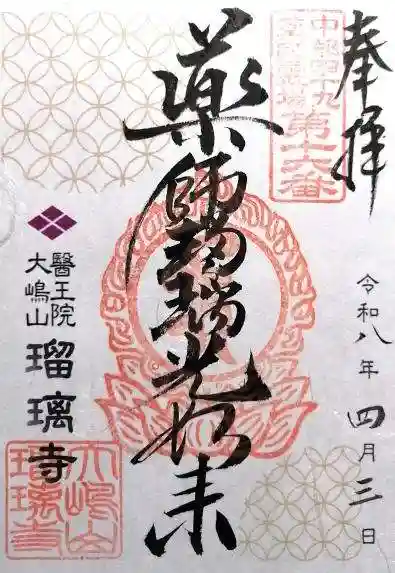 奉拝
中部四十九
薬師霊場
第十六番
令和八年 四月三日
薬師瑠璃光如来
醫王院
大嶋山
瑠璃寺
大嶋山
瑠璃寺